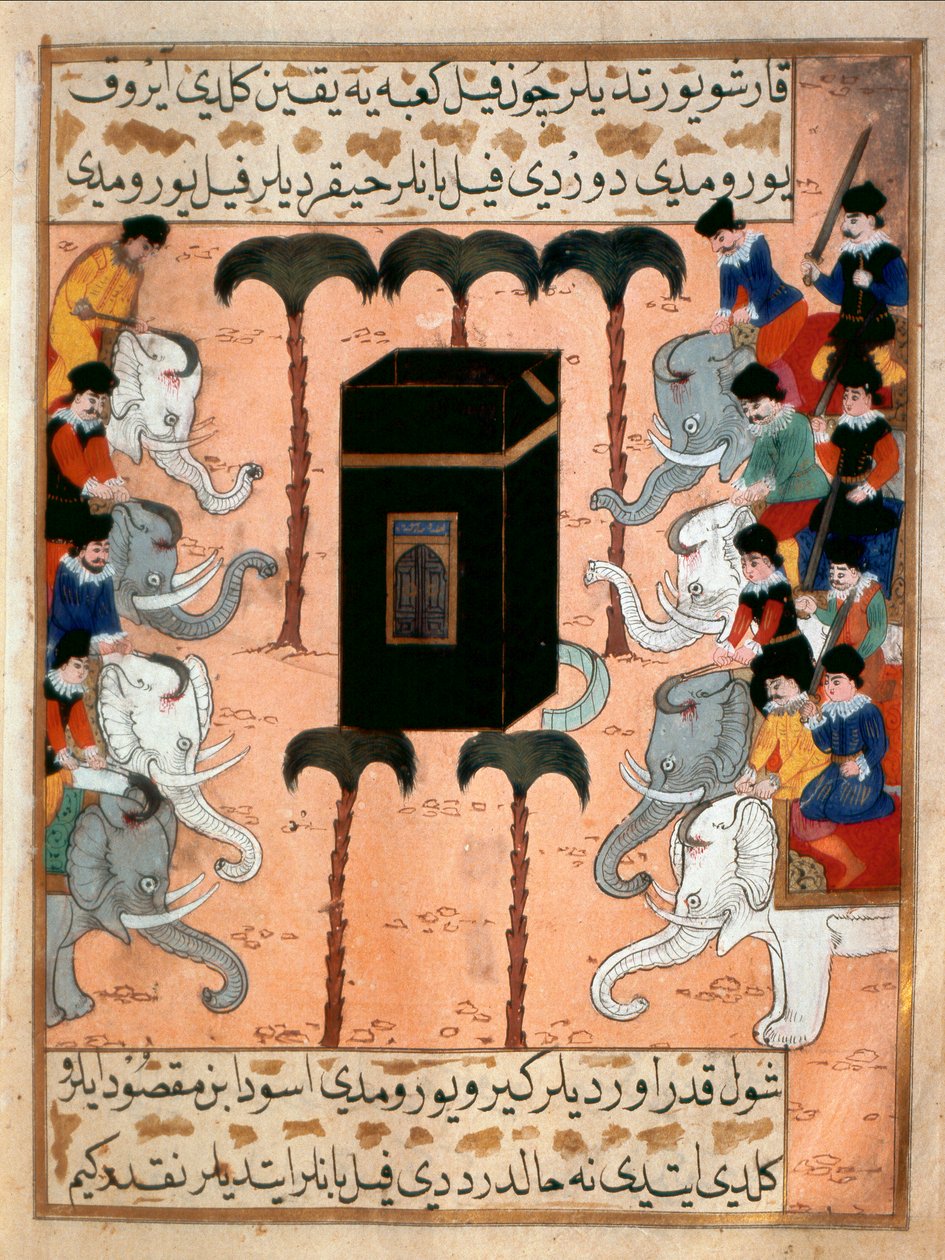 قارشو یورتدیلر چون فیل کعبه یه یقین کلدی ایروق
یورومدی دوردی فیل بانلر حیقردیلر فیل یورومدی
شول قدر اوردیلر کیرو یورومدی اسود ابن مقصود ایلرو
کلدی ایتدی نه حالدر ددی فیل بانلر ایتدیلر نقدر کیم